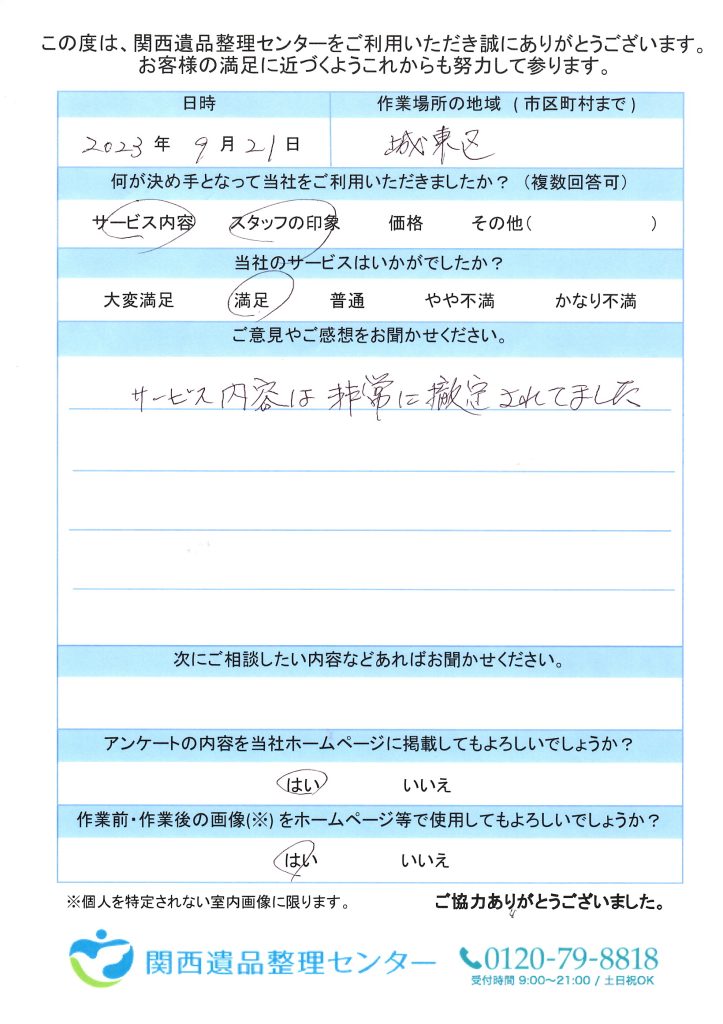 この度は、関西遺品整理センターをご利用いただき誠にありがとうございます。
お客様の満足に近づくようこれからも努力して参ります。
日時
作業場所の地域 (市区町村まで)
2023年 9月21日
城東区
何が決め手となって当社をご利用いただきましたか？ (複数回答可)
サービス内容 スタッフの印象 価格 その他( )
当社のサービスはいかがでしたか？
大変満足 満足 普通 やや不満 かなり不満
ご意見やご感想をお聞かせください。
サービス内容は非常に撤定されてました
次にご相談したい内容などあればお聞かせください。
アンケートの内容を当社ホームページに掲載してもよろしいでしょうか？
はい いいえ
作業前・作業後の画像(※)をホームページ等で使用してもよろしいでしょうか？
はい いいえ
※個人を特定されない室内画像に限ります。
ご協力ありがとうございました。
関西遺品整理センター
0120-79-8818
受付時間 9:00〜21:00 / 土日祝OK